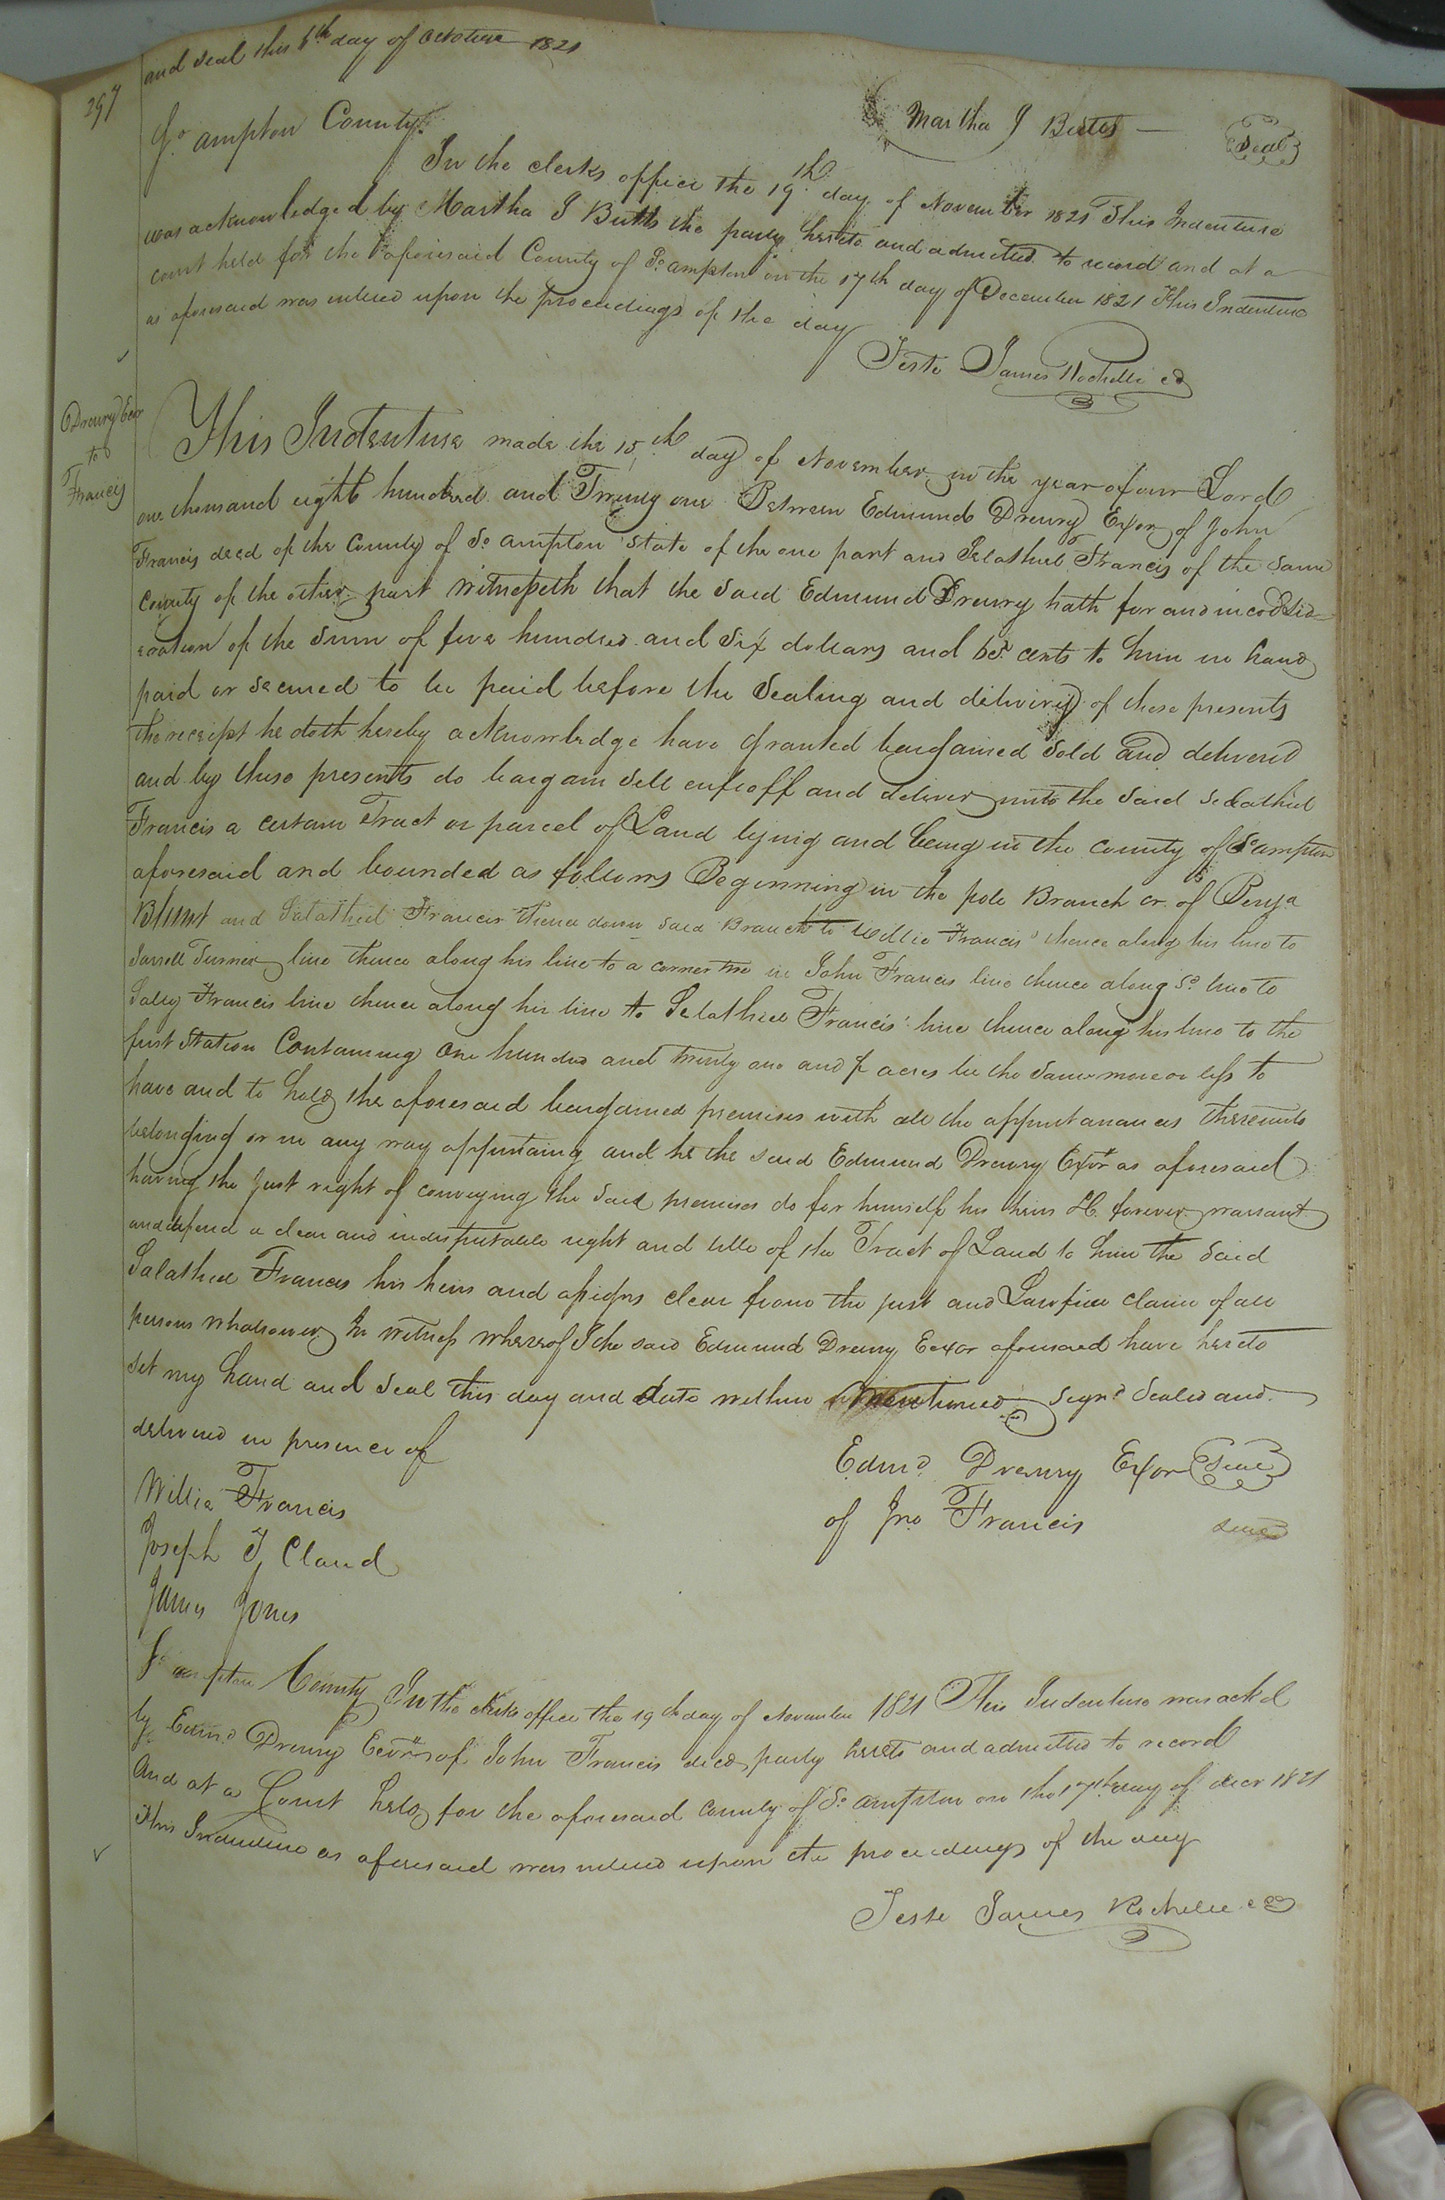 and seal this 6th day of October 1821
297
Martha J Butts Seal
So ampton County
In the clerks office the 19th day of November 1821 This Indenture
was acknowledged by Martha J Butts the party hereto and admitted to record and at a
court held for the aforesaid County of So ampton on the 17th day of December 1821 This Indenture
as aforesaid was entered upon the proceedings of the day
Teste James Rochelle
Drewry Exor
to
Francis
This Indenture made the 15th day of November in the year of our Lord
one thousand eight hundred and Twenty one Between Edmund Drewry Exor of John
Francis decd of the County of So ampton State of the one part and Selathiel Francis of the same
County of the other part Witnesseth that the said Edmund Drewry hath for and in consid
eration of the sum of five hundred and six dollars and cents to him in hand
paid or secured to be paid before the Sealing and delivery of these presents
the receipt he doth hereby acknowledge have granted bargained sold and delivered
and by these presents do bargain sell enfeoff and deliver unto the said Selathiel
Francis a certain Tract or parcel of Land lying and being in the county of So ampton
aforesaid and bounded as follows Beginning in the pole Branch cr. of Benja
Blunt and Selathiel Francis thence down said Branch to Willie Francis' thence along his line to
Jarrell Turner line thence along his line to a corner tree in John Francis line thence along sd line to
Sally Francis line thence along her line to Selathiel Francis' line thence along his line to the
first Station Containing One hundred and twenty one and acres be the same more or less to
have and to hold the aforesaid bargained premises with all the appurtanances thereunto
belonging or in any way appertaing and he the said Edmund Drewry Exor as aforesaid
having the just right of conveying the said premises do for himself his heirs &c forever warrant
and defend a clear and indisputable right and title of the Tract of Land to him the said
Salathiel Francis his heirs and assigns clear from the just and Lawfull claim of all
persons whatsoever In witness whereof I the said Edmund Drewry Exor aforesaid have hereto
set my hand and seal this day and date within mentioned Signd Sealed and
delivered in presence of
Edmd Drewry Exor Seal
of Jno Francis seal
Willie Francis
Joseph T Claud
James Jones
So ampton County In the clerks office the 19th day of November 1821 This Indenture was ackd
by Edmd Drewry Exor of John Francis decd party hereto and admitted to record
And at a Court held for the aforesaid County of So ampton on the 17th day of decr 1821
This Indenture as aforesaid was entered upon the proceedings of the day
Teste James Rochelle